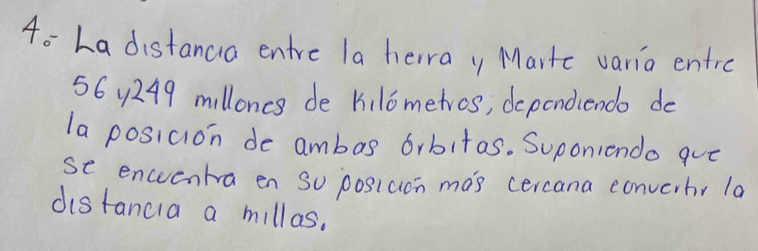 4.- La distancia entre la tierra y Marte varía entre
56 y 249 millones de Kilómetros, dependiendo de
la posición de ambas órbitas. Suponiendo que
se encuentra en su posición más cercana convertir la
distancia a millas.